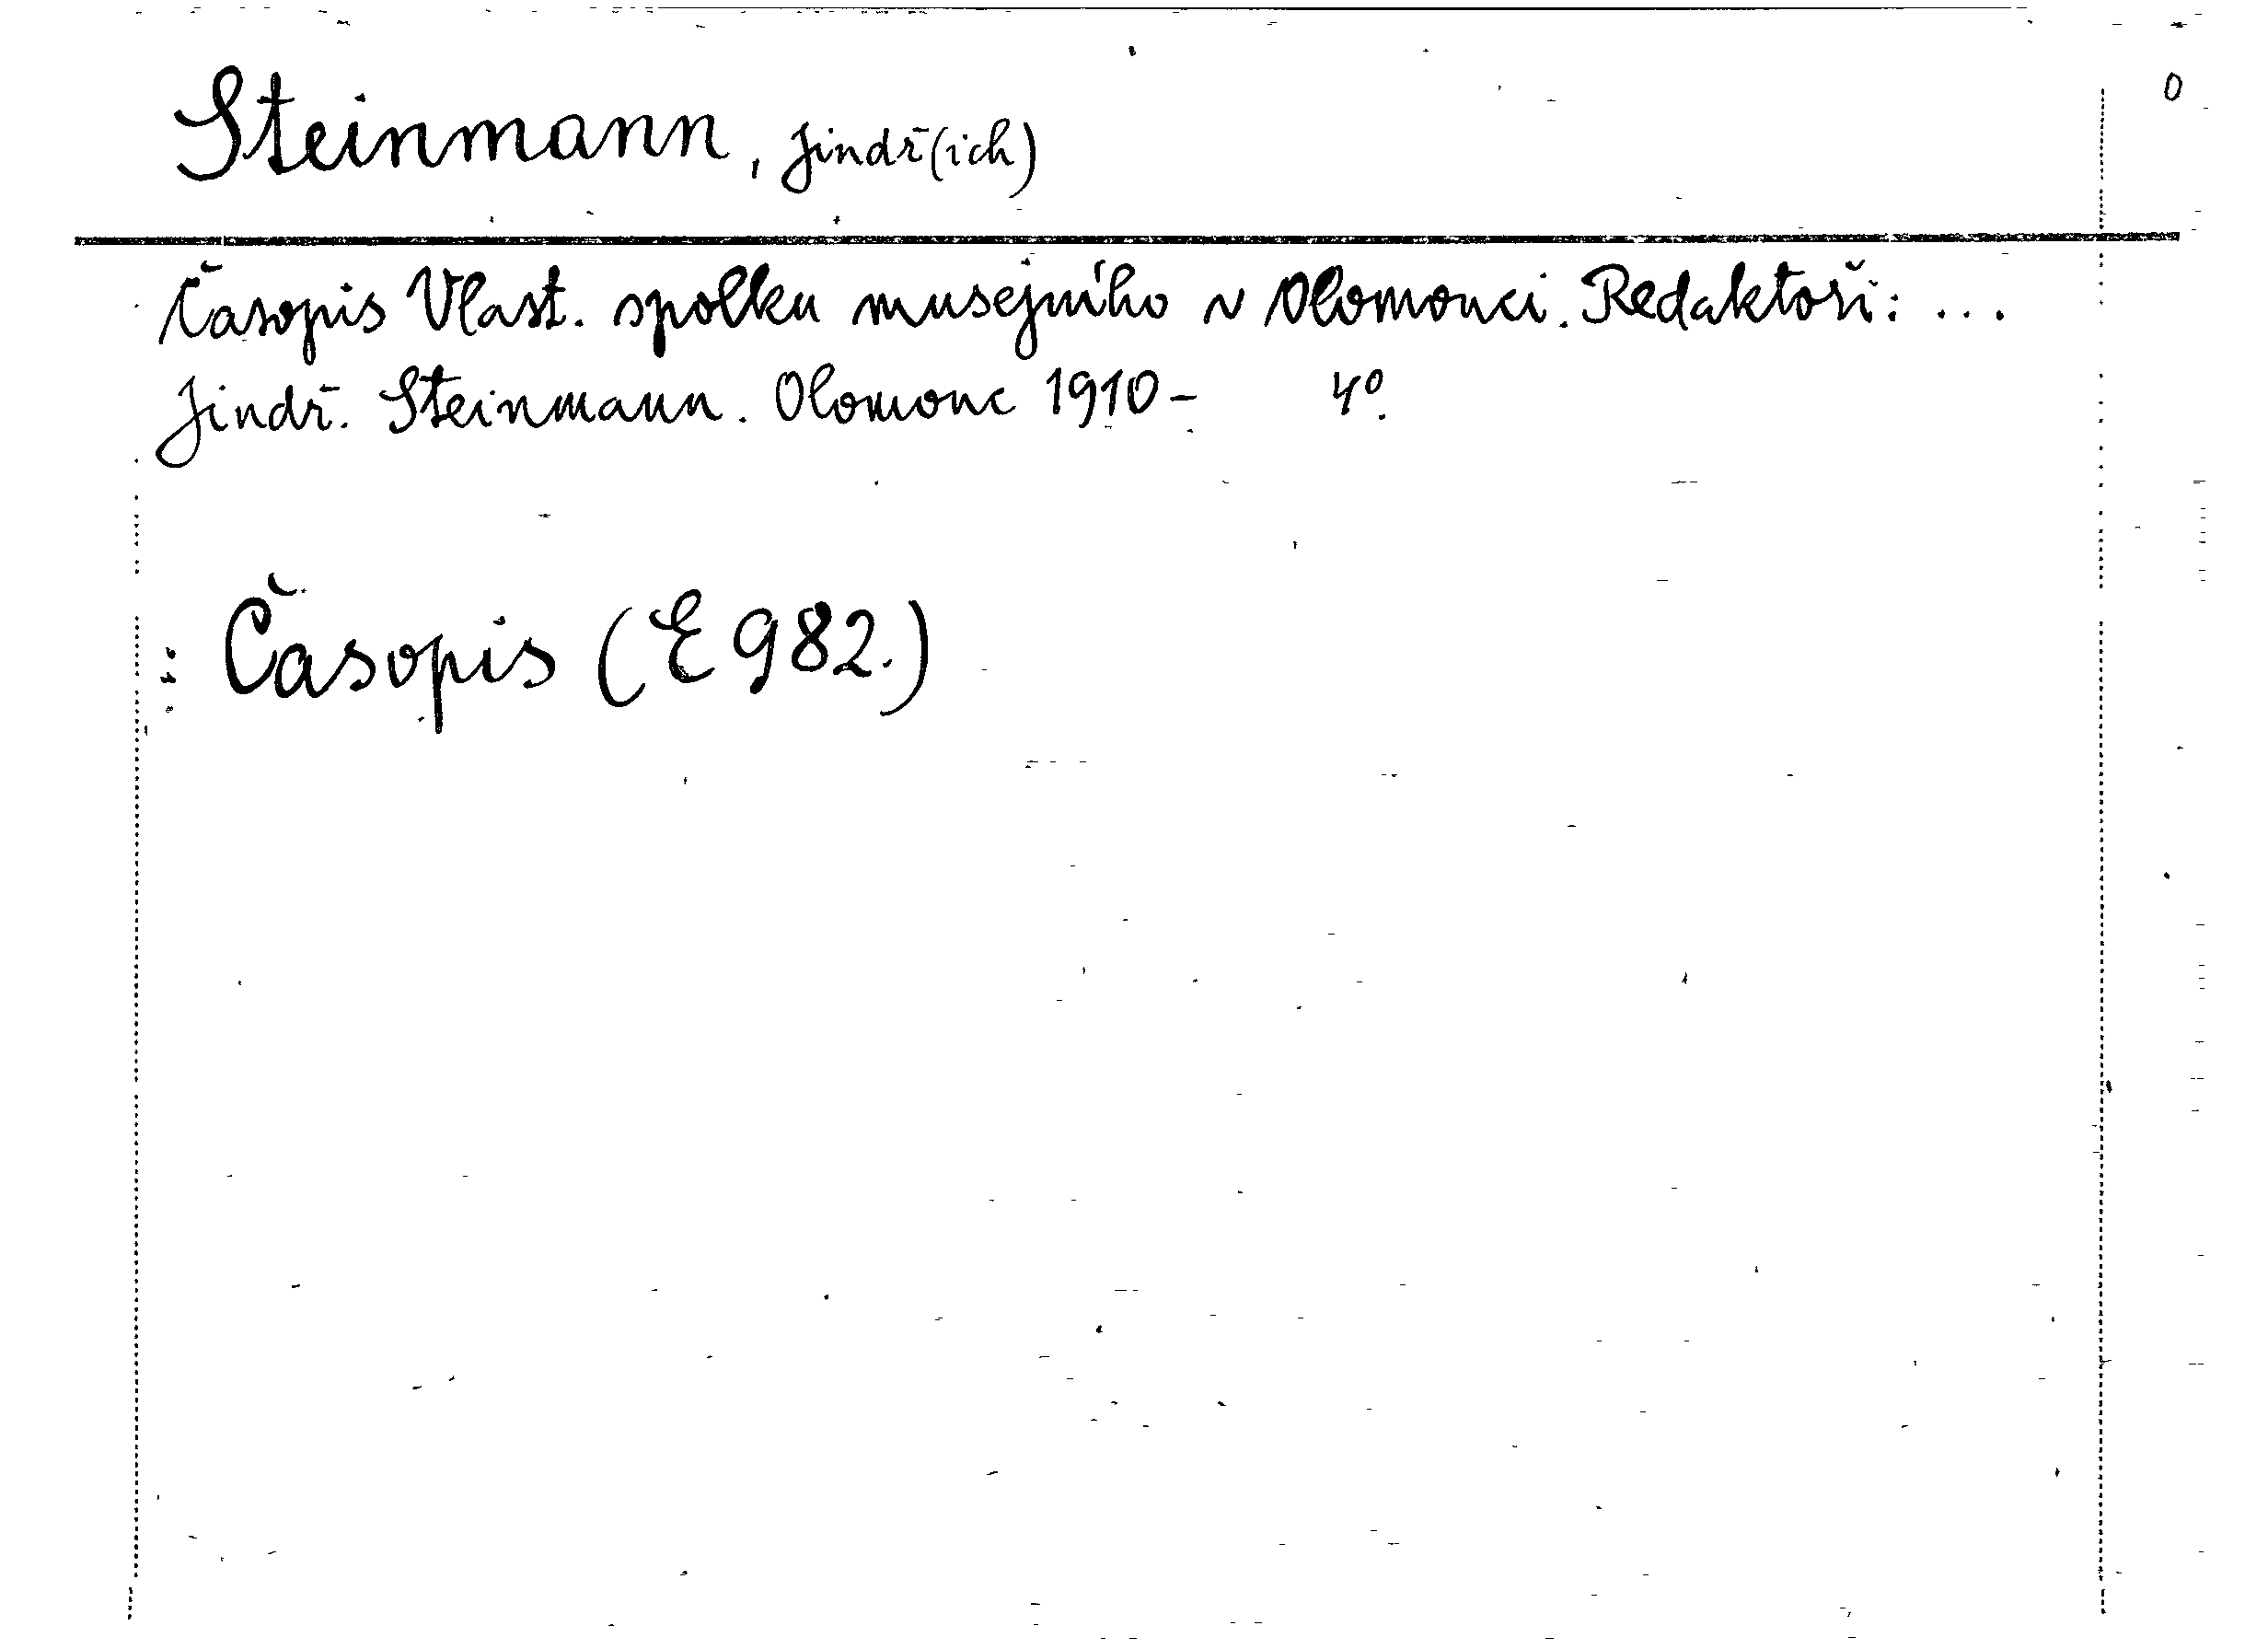 0
Steinmann, Jindř(ich)
Časopis Vlast. spolku musejního v Olomouci. Redaktoři: ...
Jindř. Steinmann. Olomouc 1910- 4°.
: Časopis (E 982.)